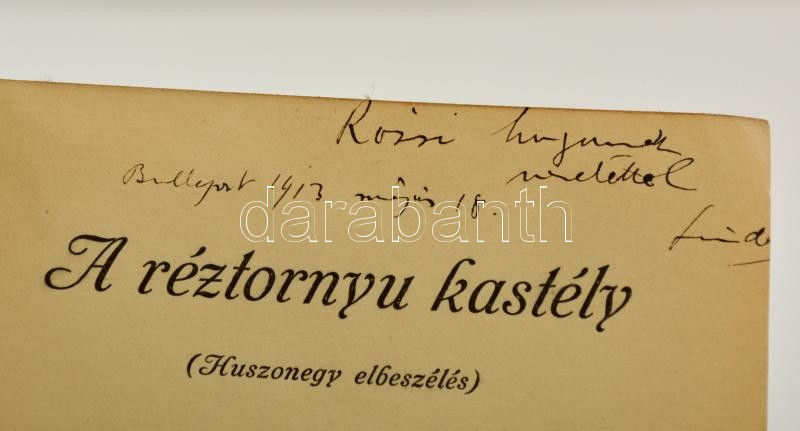 Rózsi hugomnak
szeretettel
Budapest 1913 május 18.
darabanth
A réztornyu kastély
(Huszonegy elbeszélés)